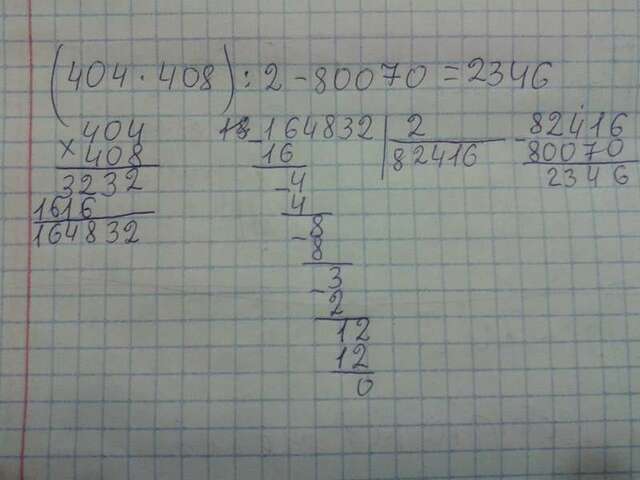 (404 · 408) : 2 - 80070 = 2346
404
× 408
3232
1616
164832
- 164832 | 2
16
82416
- 4
4
- 8
8
- 3
2
12
12
0
- 82416
80070
2346